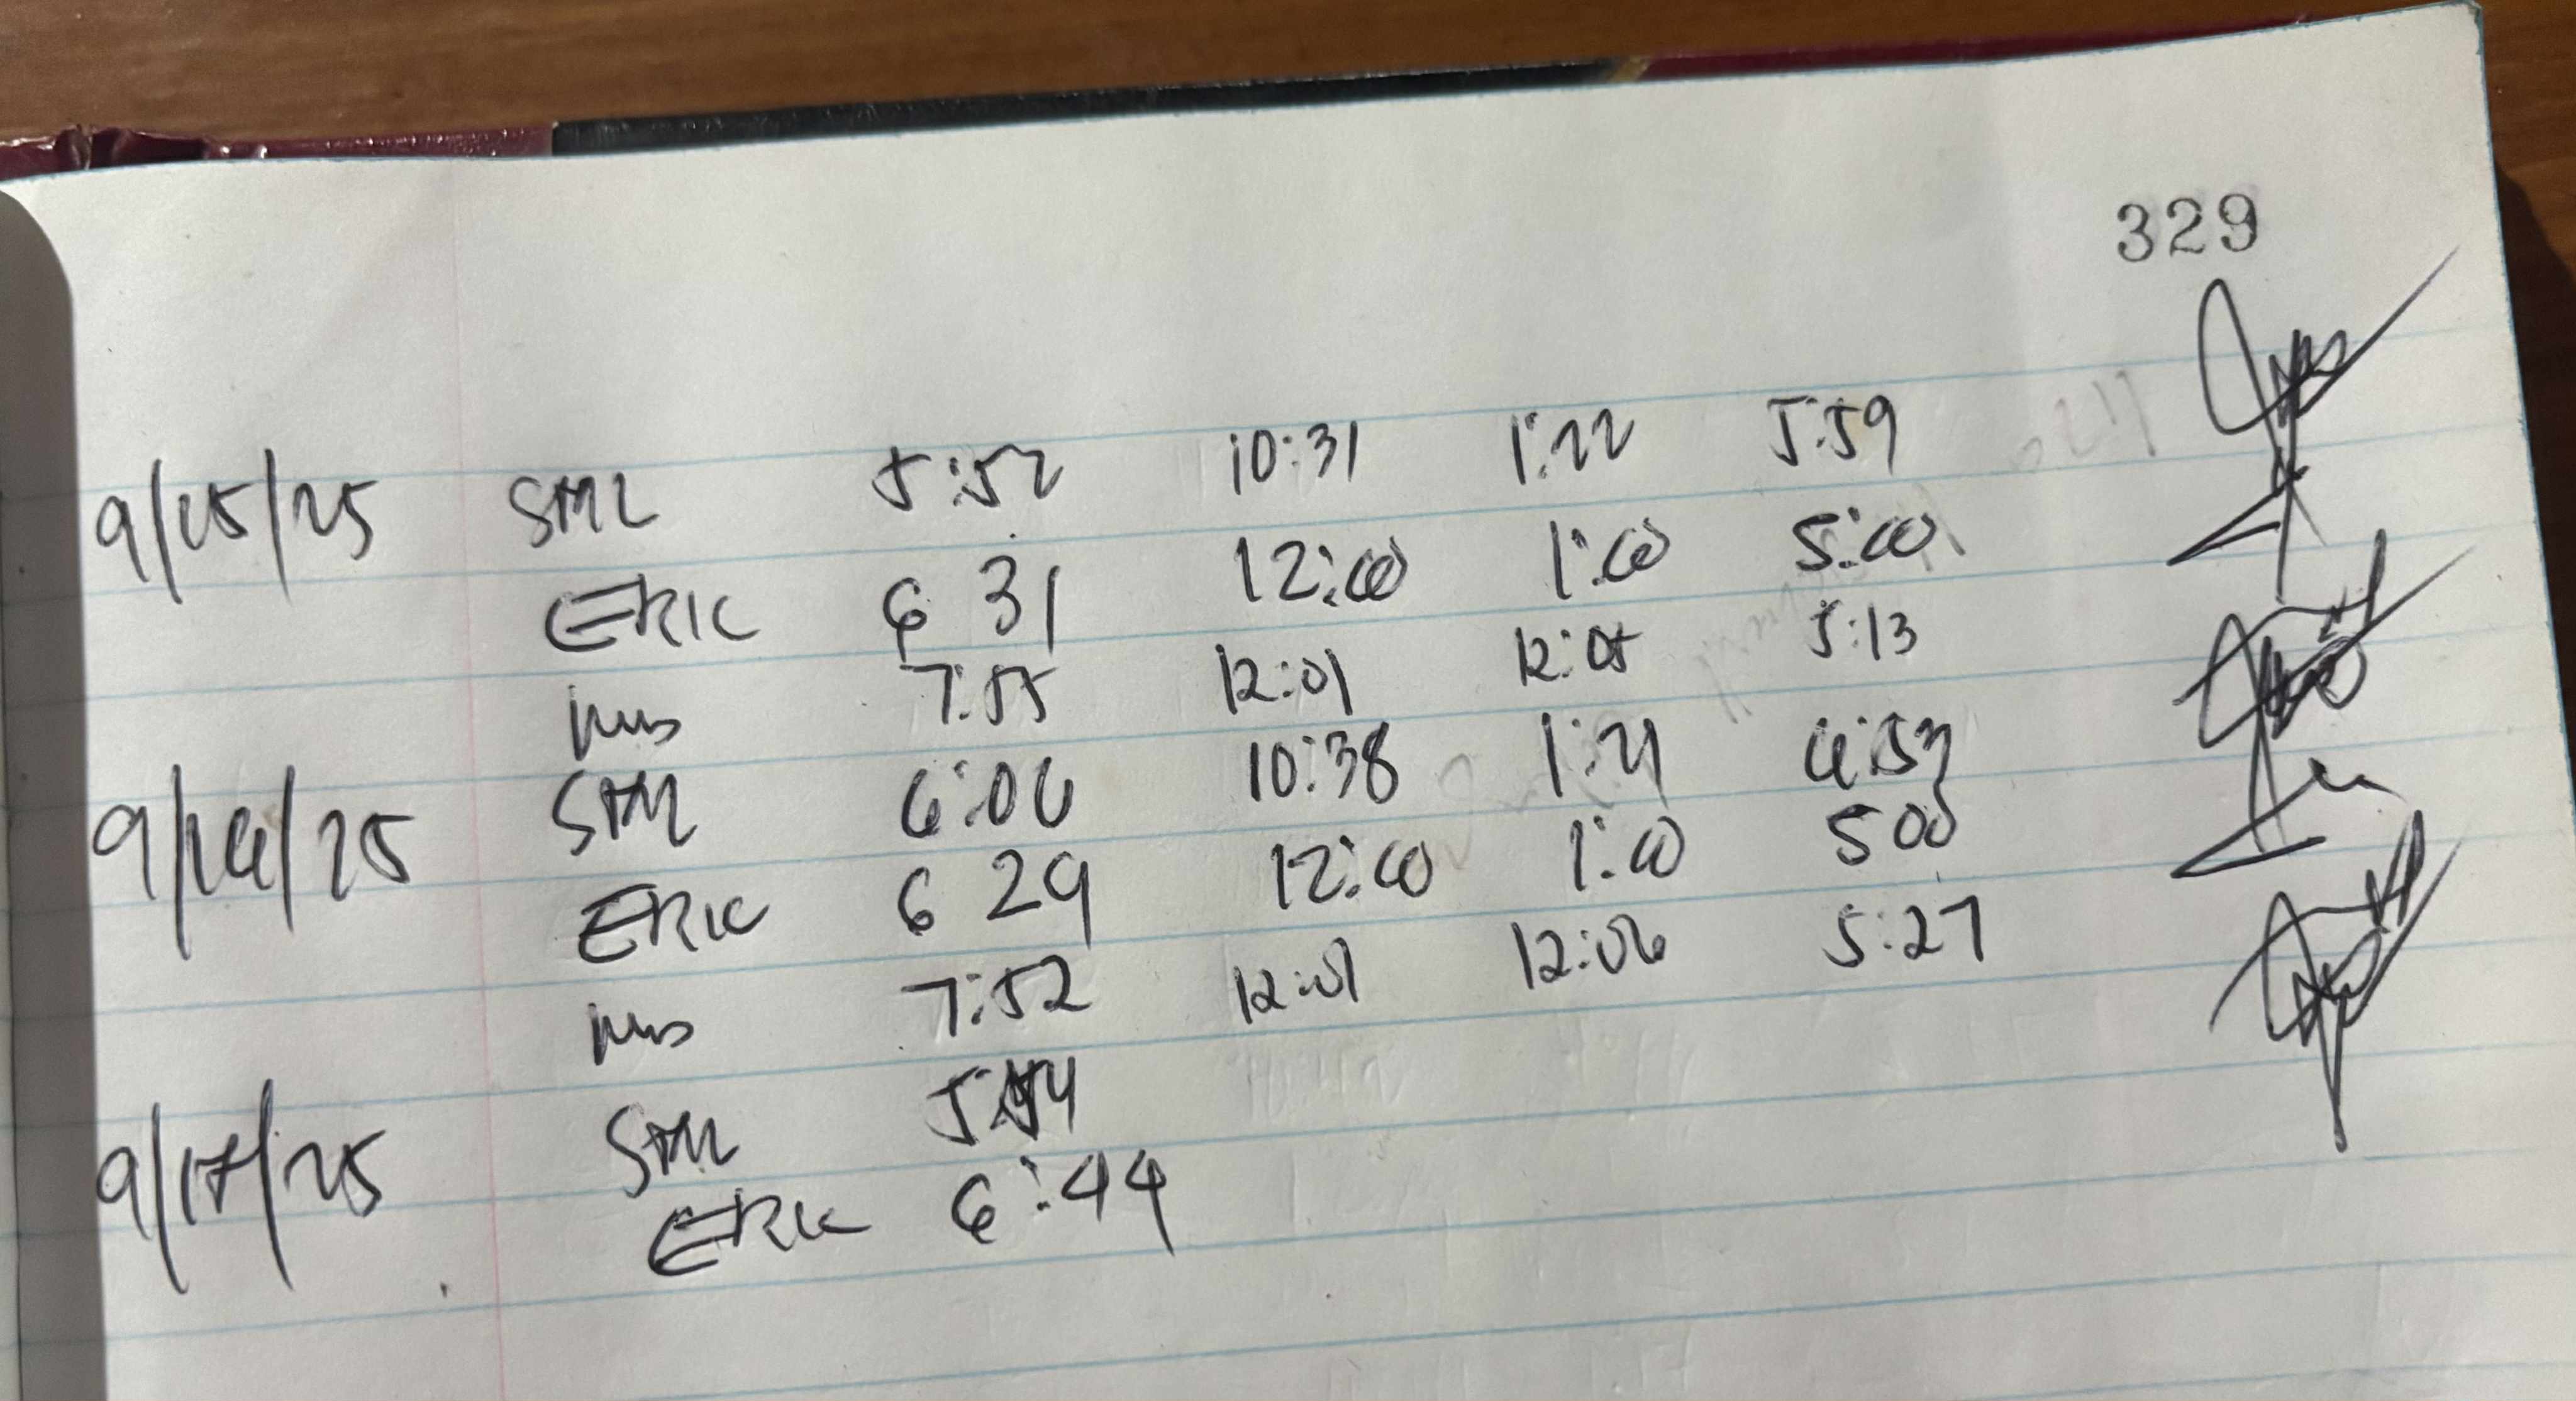 329
9/15/25 SML 5:52 10:31 1:22 5:59
ERIC 6 31 12:00 1:00 5:00
7:55 12:01 12:05 5:13
9/16/25 SML 6:06 10:38 1:21 4:53
ERIC 6 29 12:00 1:00 5 00
7:52 12:01 12:06 5:27
9/17/25 SML
ERIC 6:44